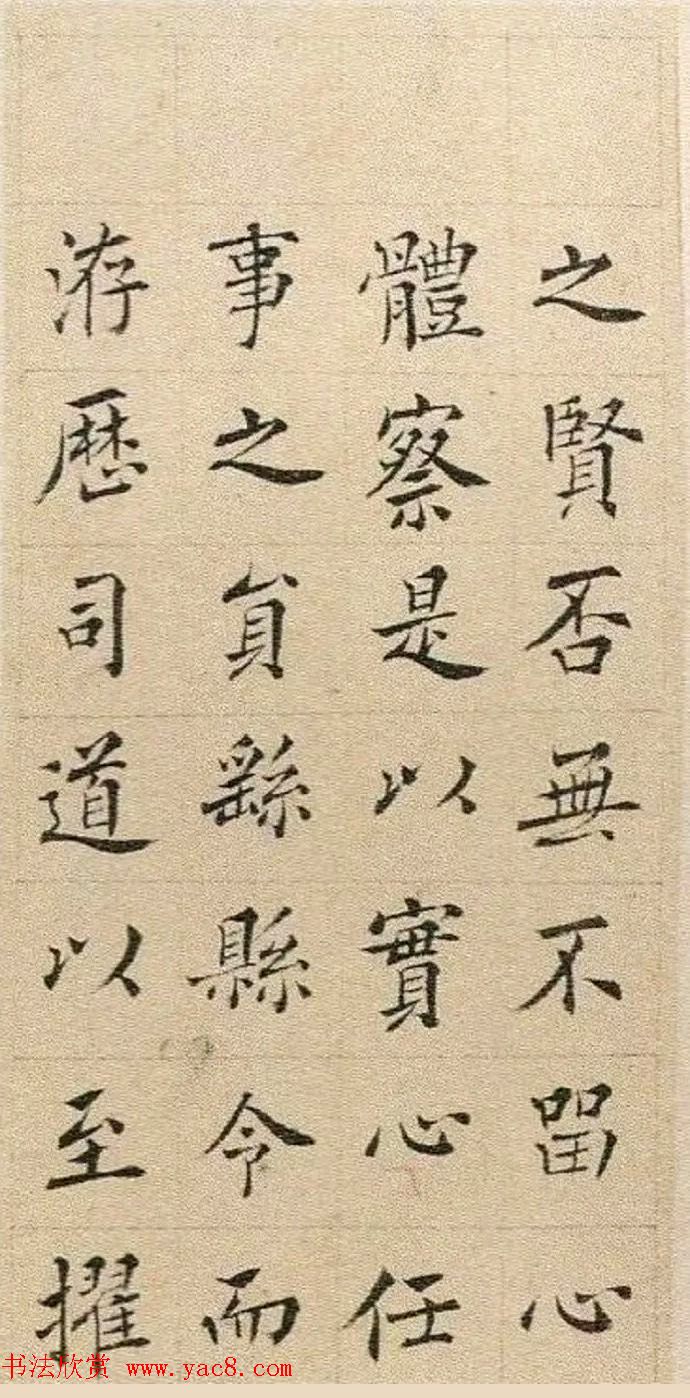 之賢否無不畱心
體察是以實心任
事之員繇縣令而
洊歷司道以至擢
书法欣赏 www.yac8.com